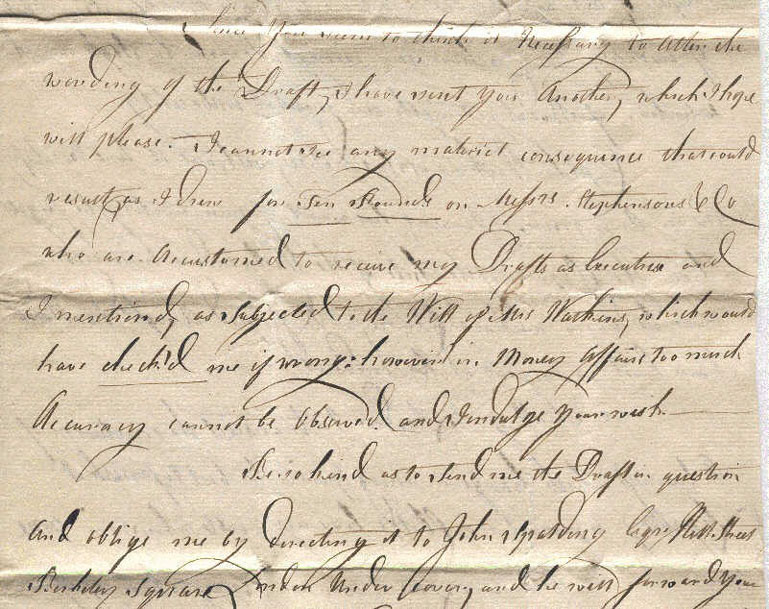 Since you seem to think it Necessary to alter the
wording of the Draft, I have sent you Another, which I hope
will please. I cannot see any material consequence that could
result, as I drew for Ten Pounds on Messrs. Stephensons & Co
who are Accustomed to receive my Drafts as Executrix and
I mention'd, as Subjected to the Will of Mrs Watkins, which would
have check'd me if wrong: however in Money Affairs too much
Accuracy cannot be Observed and I indulge Your wish
Be so kind as to Send me the Draft in question
And oblige me by directing it to John Spalding Esqre Hill Street
Berkeley Square London Under Cover, and he will forward Your